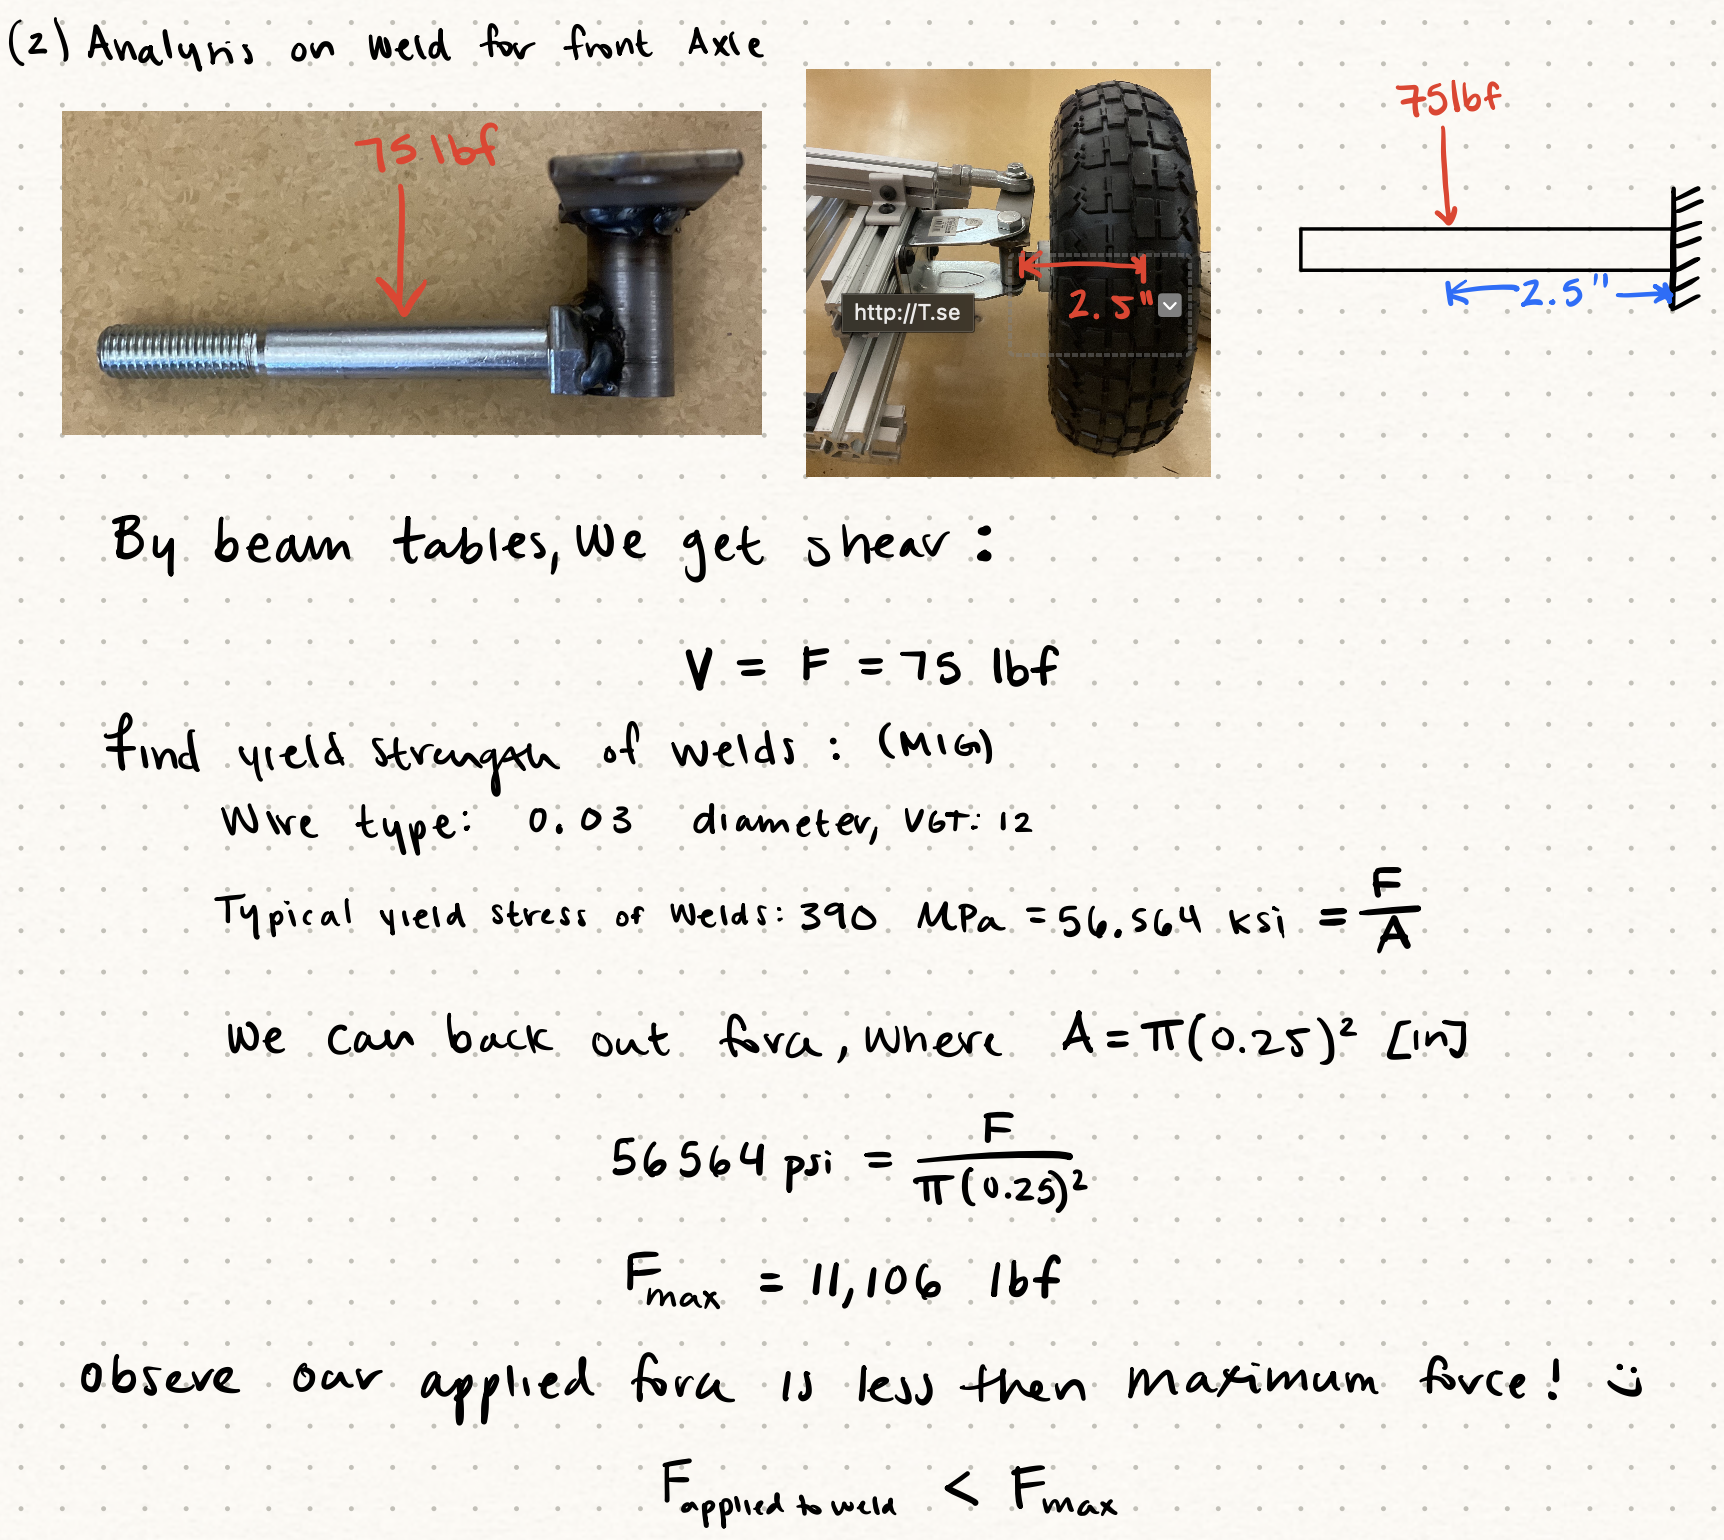 (2) Analysis on weld for front Axle
75 lbf
75 lbf
http://T.se
2.5"
2.5"
By beam tables, We get shear :
V = F = 75 lbf
find yield strength of welds : (MIG)
Wire type: 0.03 diameter, VGT: 12
Typical yield stress of Welds: 390 MPa = 56.564 ksi = F/A
We can back out force, Where A = π(0.25)² [in]
56564 psi = F/π(0.25)²
Fmax = 11,106 lbf
obseve our applied force is less then maximum force! :)
Fapplied to weld < Fmax